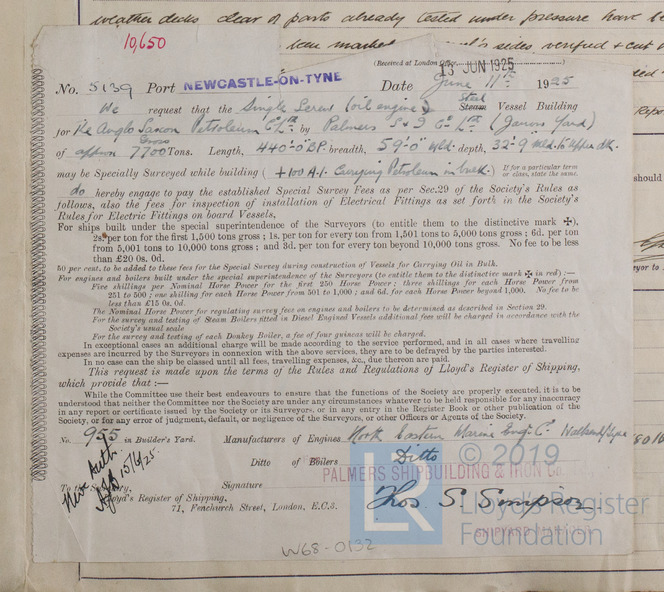 weather decks clear of parts already tested under pressure have be
10,650
been marked vessel's sides verified & cut
(Received at London Office
13 JUN 1925
No. 5139 Port NEWCASTLE-ON-TYNE Date June 11th 1925
We request that the Single Screw (oil engine) Steel Steam Vessel Building
for The Anglo Saxon Petroleum Co Ltd by Palmers S & I Co Ltd (Jarrow Yard)
of approx 7700 Gross Tons. Length, 440'-0" BP. breadth, 59'-0" Mld. depth, 32'-9" Mld. to upper dk.
may be Specially Surveyed while building ( +100 A.1. Carrying Petroleum in bulk. ) If for a particular term or class, state the same.
do hereby engage to pay the established Special Survey Fees as per Sec.29 of the Society's Rules as
follows, also the fees for inspection of installation of Electrical Fittings as set forth in the Society's
Rules for Electric Fittings on board Vessels,
For ships built under the special superintendence of the Surveyors (to entitle them to the distinctive mark ✠),
2s. per ton for the first 1,500 tons gross ; 1s. per ton for every ton from 1,501 to 5,000 tons gross ; 6d. per ton
from 5,001 tons to 10,000 tons gross ; and 3d. per ton for every ton beyond 10,000 tons gross. No fee to be less
than £20 0s. 0d.
50 per cent. to be added to these fees for the Special Survey during construction of Vessels for Carrying Oil in Bulk.
For engines and boilers built under the special superintendence of the Surveyors (to entitle them to the distinctive mark ✠ in red) :—
Five shillings per Nominal Horse Power for the first 250 Horse Power ; three shillings for each Horse Power from
251 to 500 ; one shilling for each Horse Power from 501 to 1,000 ; and 6d. for each Horse Power beyond 1,000. No fee to be
less than £15 0s. 0d.
The Nominal Horse Power for regulating survey fees on engines and boilers to be determined as described in Section 29.
For the survey and testing of Steam Boilers fitted in Diesel Engined Vessels additional fees will be charged in accordance with the
Society's usual scale
For the survey and testing of each Donkey Boiler, a fee of four guineas will be charged.
In exceptional cases an additional charge will be made according to the service performed, and in all cases where travelling
expenses are incurred by the Surveyors in connexion with the above services, they are to be defrayed by the parties interested.
In no case can the ship be classed until all fees, travelling expenses, &c., due thereon are paid.
This request is made upon the terms of the Rules and Regulations of Lloyd's Register of Shipping,
which provide that :—
While the Committee use their best endeavours to ensure that the functions of the Society are properly executed, it is to be
understood that neither the Committee nor the Society are under any circumstances whatever to be held responsible for any inaccuracy
in any report or certificate issued by the Society or its Surveyors, or in any entry in the Register Book or other publication of the
Society, or for any error of judgment, default, or negligence of the Surveyors, or other Officers or Agents of the Society.
No. 955 in Builder's Yard. Manufacturers of Engines North Eastern Marine Engg Co. Wallsend/Tyne
Ditto of Boilers Ditto
PALMERS SHIPBUILDING & IRON Co.
To The Secretary, Signature
Lloyd's Register of Shipping, Thos S. Simpson
71, Fenchurch Street, London, E.C.3.
SHIPYARD MANAGER
15/6/25.
W68-0132
LR
© 2019
Lloyd's Register
Foundation
should